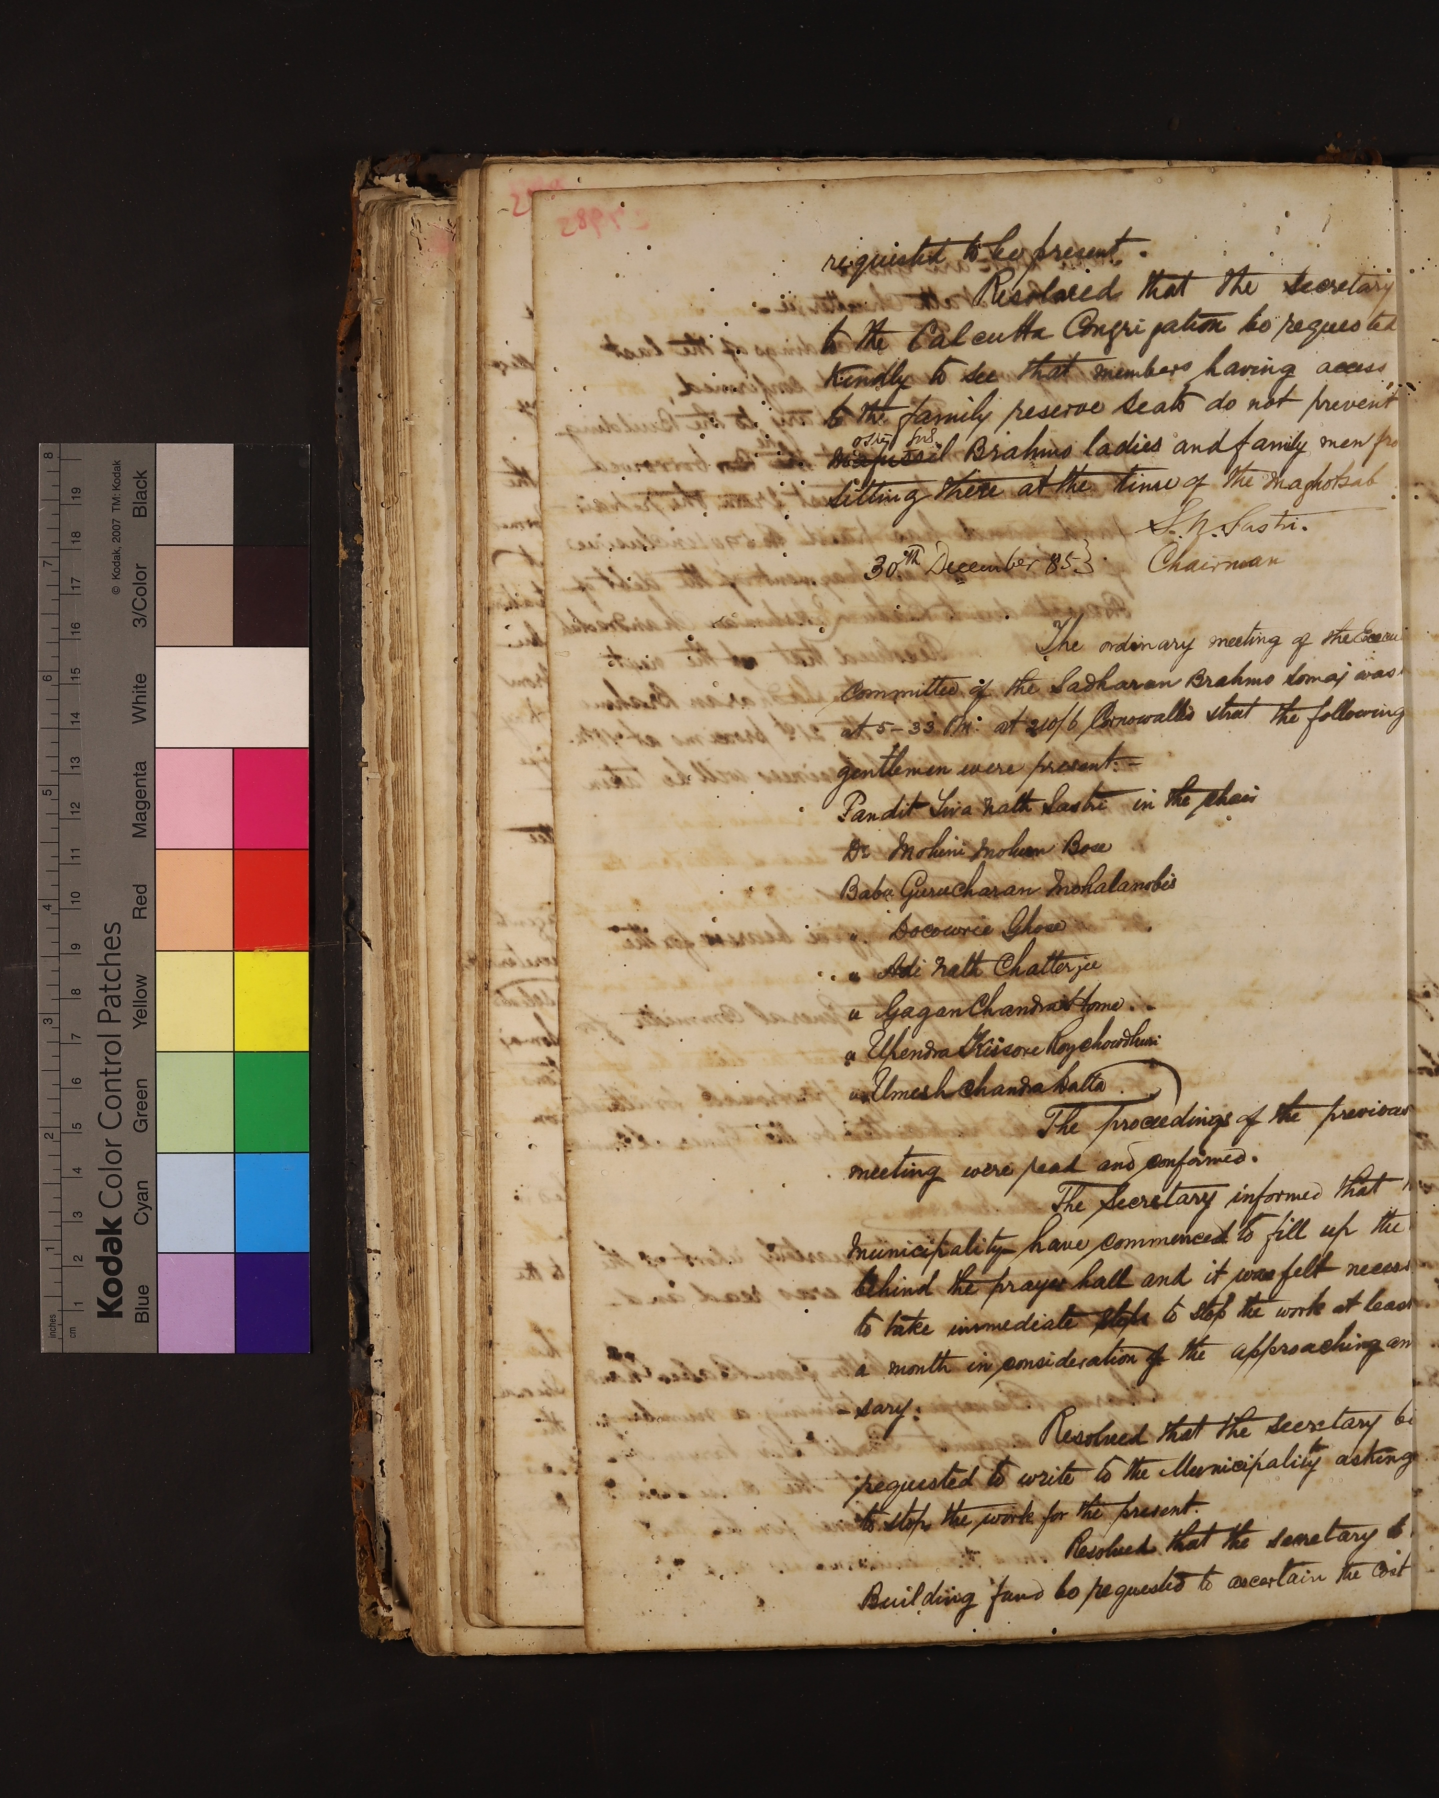 requested to be present.
Resolved that the Secretary
to the Calcutta Congregation be requested
kindly to see that members having access
to the family reserve seats do not prevent
Brahmo ladies and family men fro
sitting there at the time of the Maghotsab
S. N. Sastri.
30th December 85} Chairman
The ordinary meeting of the Execu
Committee of the Sadharan Brahmo Somaj was
at 5-33 P.M. at 210/6 Cornowallis street the following
gentlemen were present:-
Pandit Siva Nath Sastri in the chair
Dr Mohini Mohun Bose
Babu Gurucharan Mohalanobis
" Docowrie Ghose
" Adi Nath Chatterjee
" Gagan Chandra Home
" Upendra Kissore Roychowdhuri
" Umesh Chandra Datta
The proceedings of the previous
meeting were read and confirmed.
The Secretary informed that
Municipality have commenced to fill up the
behind the prayer hall and it was felt necess
to take immediate steps to stop the work at least
a month in consideration of the approaching an
-sary.
Resolved that the Secretary be
requested to write to the Municipality asking
to stop the work for the present.
Resolved that the Secretary to
Building fund be requested to ascertain the cost
Kodak Color Control Patches
© Kodak, 2007 TM: Kodak
Blue Cyan Green Yellow Red Magenta White 3/Color Black
inches 1 2 3 4 5 6 7 8
cm 1 2 3 4 5 6 7 8 9 10 11 12 13 14 15 16 17 18 19